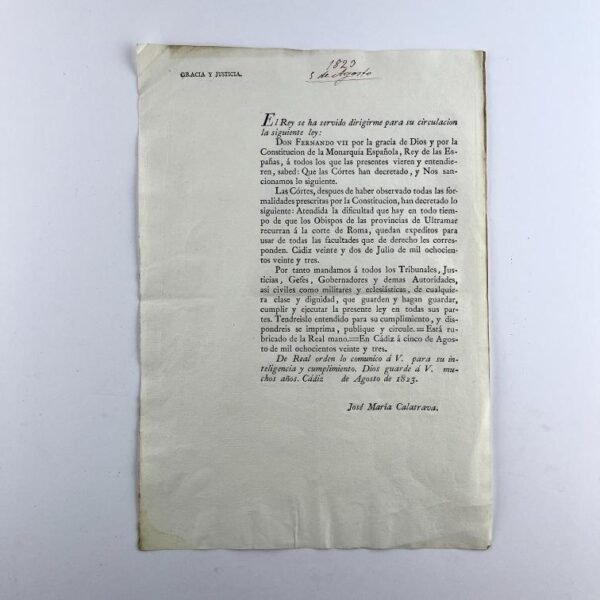 GRACIA Y JUSTICIA.
1823
5 de Agosto
El Rey se ha servido dirigirme para su circulacion
la siguiente ley:
DON FERNANDO VII por la gracia de Dios y por la
Constitucion de la Monarquía Española, Rey de las Es-
pañas, á todos los que las presentes vieren y entendie-
ren, sabed: Que las Córtes han decretado, y Nos san-
cionamos lo siguiente.
Las Córtes, despues de haber observado todas las for-
malidades prescritas por la Constitucion, han decretado lo
siguiente: Atendida la dificultad que hay en todo tiem-
po de que los Obispos de las provincias de Ultramar
recurran á la corte de Roma, quedan expeditos para
usar de todas las facultades que de derecho les corres-
ponden. Cádiz veinte y dos de Julio de mil ochocien-
tos veinte y tres.
Por tanto mandamos á todos los Tribunales, Jus-
ticias, Gefes, Gobernadores y demas Autoridades,
así civiles como militares y eclesiásticas, de cualquie-
ra clase y dignidad, que guarden y hagan guardar,
cumplir y ejecutar la presente ley en todas sus par-
tes. Tendreislo entendido para su cumplimiento, y dis-
pondreis se imprima, publique y circule.=Está ru-
bricado de la Real mano.=En Cádiz á cinco de Agos-
to de mil ochocientos veinte y tres.
De Real orden lo comunico á V. para su in-
teligencia y cumplimiento. Dios guarde á V. mu-
chos años. Cádiz de Agosto de 1823.
José María Calatrava.